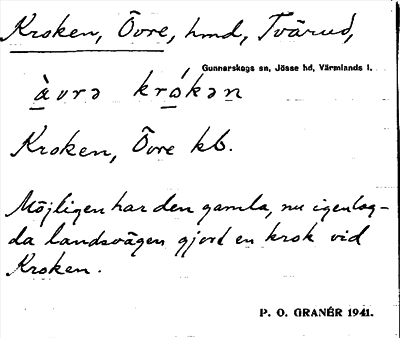 Kroken, Övre, hmd, Tvärud,
Gunnarskogs sn, Jösse hd, Värmlands l.
àvrə krókən
Kroken, Övre kb.
Möjligen har den gamla, nu igenlag-
da landsvägen gjord en krok vid
Kroken.
P. O. GRANÉR 1941.